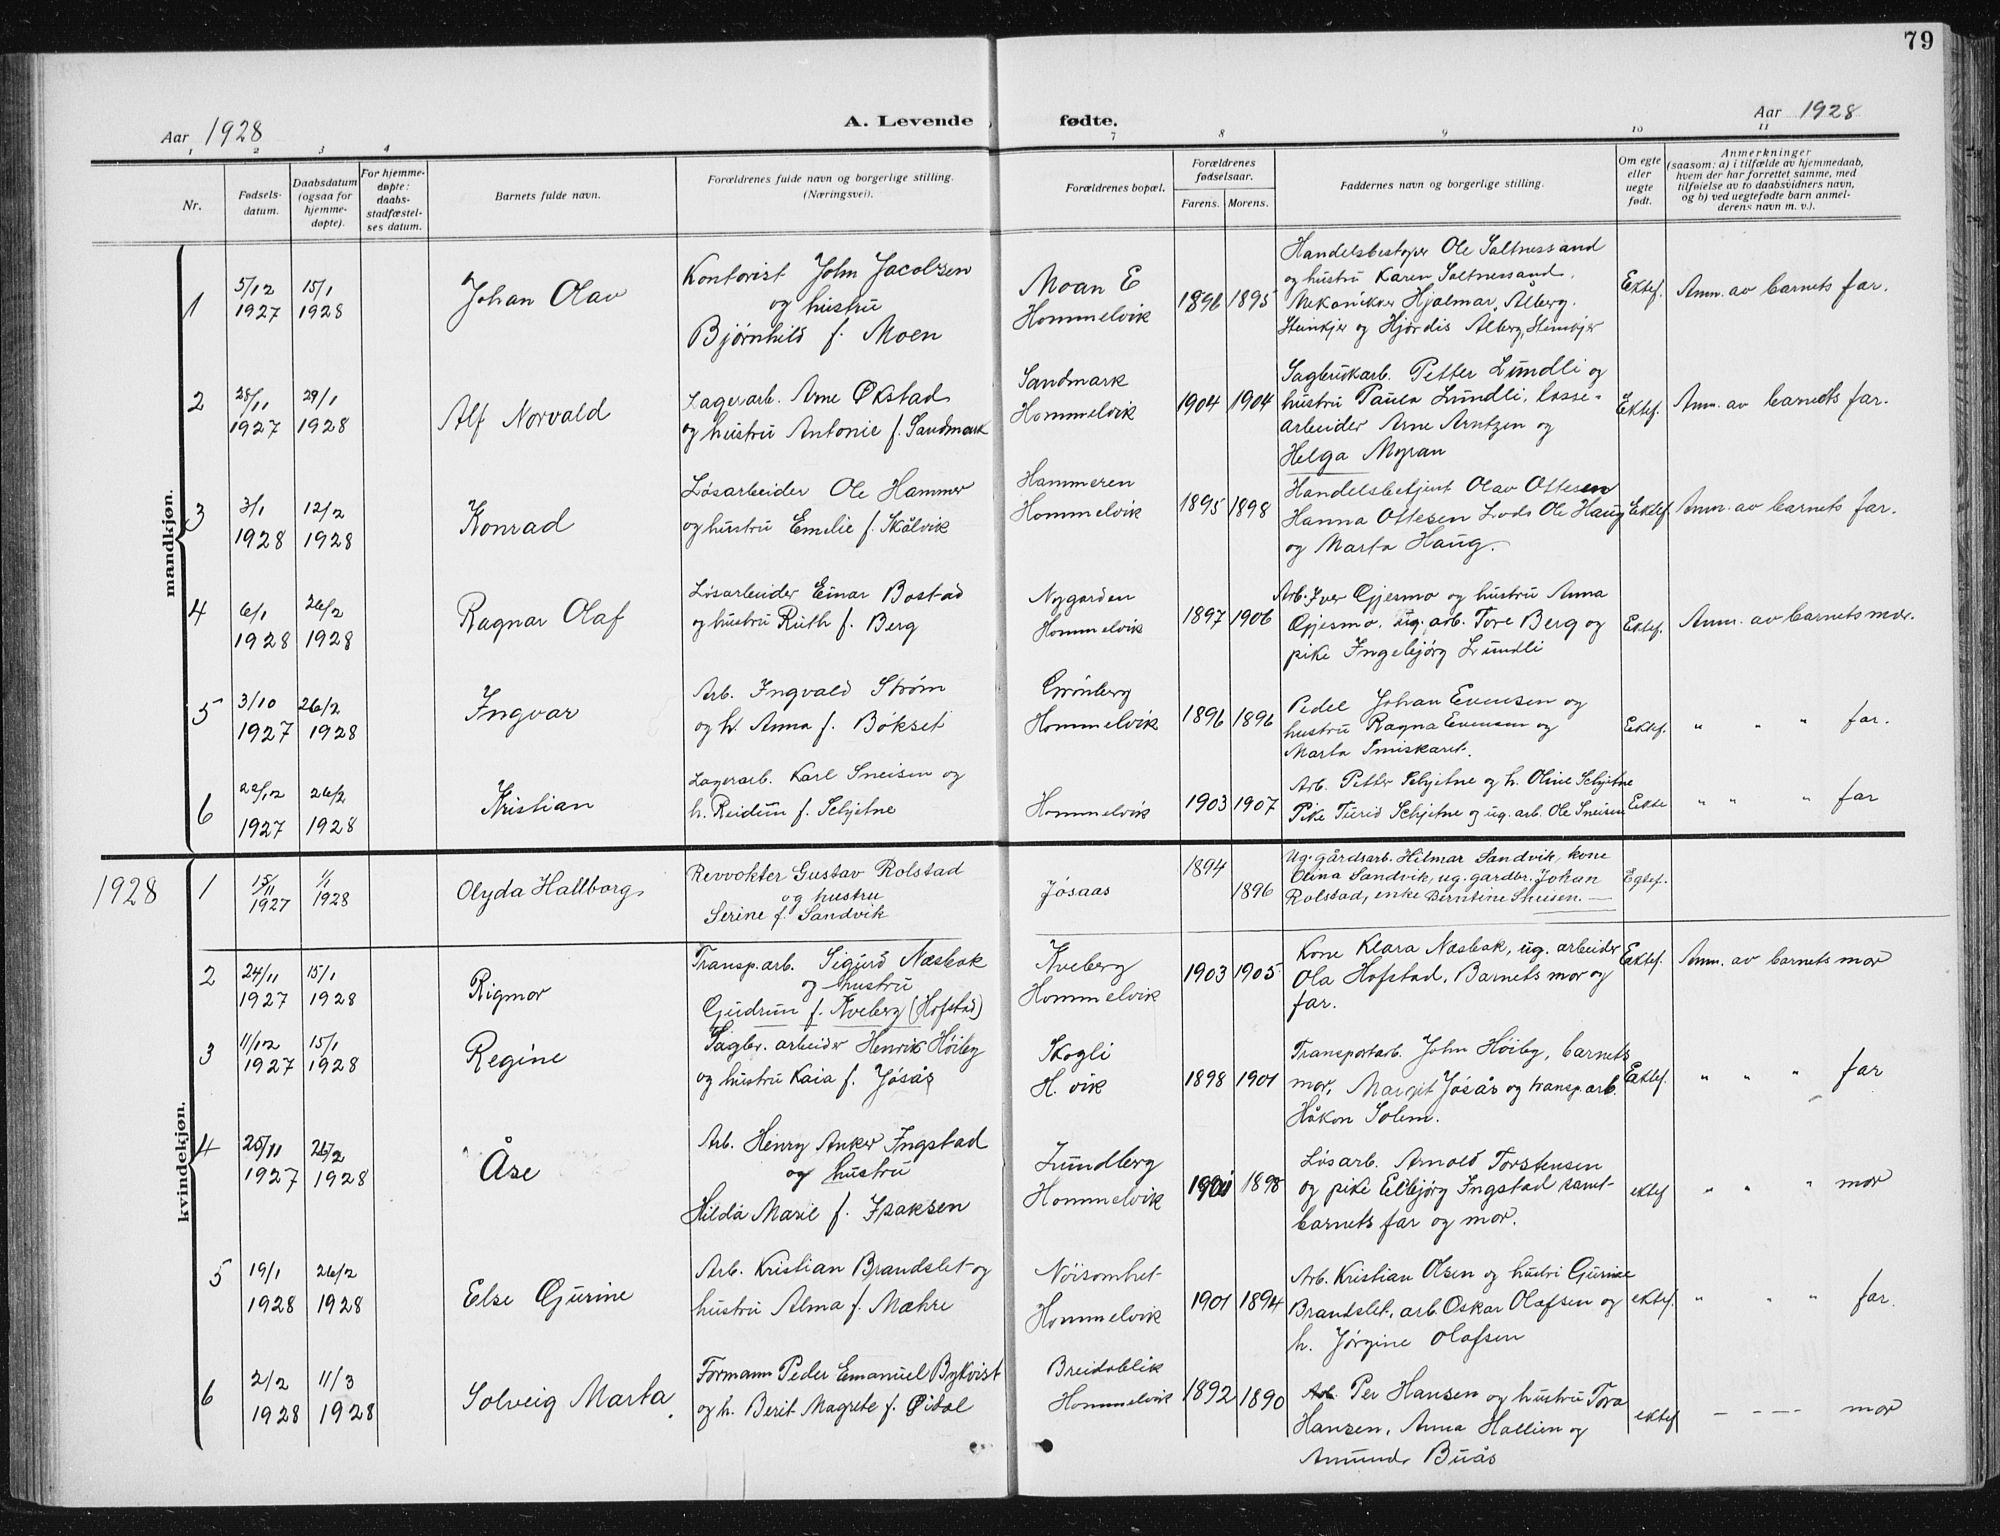 79
Aar 1928
A. Levende fødte.
Aar 1928
1 2 3 4 7 8 9 10 11
Nr.
Fødsels-
datum.
Daabsdatum
(ogsaa for
hjemme-
døpte).
For hjemme-
døpte:
daabs-
stadfæstel-
ses datum.
Barnets fulde navn.
Forældrenes fulde navn og borgerlige stilling.
(Næringsvei).
Forældrenes bopæl.
Forældrenes
fødselsaar.
Farens. Morens.
Faddernes navn og borgerlige stilling.
Om egte
eller
uegte
født.
Anmerkninger
(saasom: a) i tilfælde av hjemmedaab,
hvem der har forrettet samme, med
tilføielse av to daabsvidners navn,
og b) ved uegtefødte barn anmel-
derens navn m. v.).
mandkjøn.
1
5/12
1927
15/1
1928
Johan Olav
Kontorist John Jacobsen
og hustru
Bjørnhild f. Moen
Moan E
Hommelvik
1896 1895
Handelsbestyrer Ole Saltnessand
og hustru Karen Saltnessand.
Mekanikker Hjalmar Ålberg.
Steinkjer og Hjørdis Ålberg, Steinkjer
Ektef.
Anm. av barnets far.
2
28/11
1927
29/1
1928
Alf Norvald
Lagerarb. Arne Økstad
og hustru Antonie f. Sandmark
Sandmark
Hommelvik
1904 1904
Sagbrukarb. Petter Lundli og
hustru Paula Lundli, losse-
arbeider Arne Arntzen og
Helga Myran
Ektef.
Anm. av barnets far.
3
3/1
1928
12/2
1928
Konrad
Løsarbeider Ole Hammer
og hustru Emelie f. Skålvik
Hammeren
Hommelvik
1895 1898
Handelsbetjent Olav Ottesen
Hanna Ottesen Lods Ole Haug
og Marta Haug.
Ektef
Anm. av barnets far.
4
6/1
1928
26/2
1928
Ragnar Olaf
Løsarbeider Einar Bostad
og hustru Ruth f. Berg
Nygarden
Hommelvik
1897 1906
Arb. Iver Gjesmo og hustru Anna
Gjesmo, ug. arb. Tore Berg og
pike Ingebjørg Lundli
Ektef.
Anm. av barnets mor.
5
3/10
1927
26/2
1928
Ingvar
Arb. Ingvald Strøm
og h. Anna f. Bökset
Grønberg
Hommelvik
1896 1896
Pedel Johan Evensen og
hustru Ragna Evensen og
Marta
Ektef.
" " " far.
6
22/12
1927
26/2
1928
Kristian
Lagerarb. Karl Sneisen og
h. Reidun f. Schjetne
Hommelvik
1903 1907
Arb. Petter Schjetne og h. Oline Schjetne
Pike Turid Schjetne og ug. arb. Ole Sneisen
Ekte
" " " far
kvindekjøn.
1928
1
15/11
1927
1/1
1928
Olyda Hallborg
Gustav Rolstad
og hustru
Serine f. Sandvik
Jøsaas
1894
1896
Ug. gårdsarb. Hilmar Sandvik, kone
Olina Sandvik, ug. gardbr. Johan
Rolstad, enke Berntine
Egtef.
2
24/11
1927
15/1
1928
Rigmor
Transp.arb. Sigurd Næsbak
og hustru
Gudrun f. Kveberg (Hofstad)
Kveberg
Hommelvik
1903 1905
Kone Klara Næsbak, ug. arbeider
Ola Hofstad, Barnets mor og
far.
Ektef.
Anm. av barnets mor
3
11/12
1927
15/1
1928
Regine
Sagbr. arbeider Henrik Høiby
og hustru Kaia f. Jøsås
Skogli
H. vik
1898 1901
Transportarb. John Høiby, barnets
mor, Margit Jøsås og transp.arb.
Håkon Solem.
Ektef.
" " " far
4
25/11
1927
26/2
1928
Åse
Arb. Henry Anker Ingstad
og hustru
Hilda Marie f. Isaksen
Lundberg
Hommelvik
1898
Løsarb. Arnold Torstensen
og pike Elbjörg Ingstad samt
barnets far og mor.
ektef
" " " mor
5
19/1
1928
26/2
1928
Else Gurine
Arb. Kristian Brandslet og
hustru Alma f. Mæhre
Nöisomhet
Hommelvik
1901 1894
Arb. Kristian Olsen og hustru Gurine
Brandslet, arb. Oskar Olafsen og
h. Jørgine Olafsen
ektef.
" " " far.
6
2/2
1928
11/3
1928
Solveig Marta
Formann Peder Emanuel Bykvist
og h. Berit Magrete f. Öidal
Breidablik
Hommelvik
1892 1890
Arb. Per Hansen og hustru Tora
Hansen, Anna Hallien og
Amund Buås
ektef
— — — mor